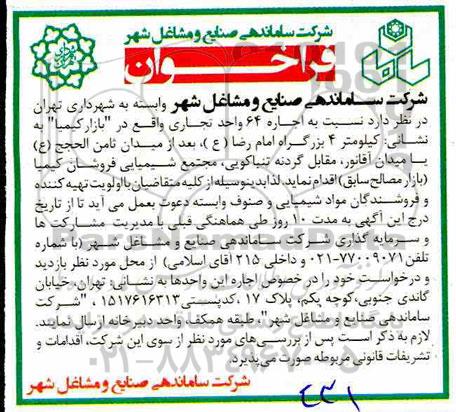 شرکت ساماندهی صنایع و مشاغل شهر
فراخـوان
شرکت ساماندهی صنایع و مشاغل شهر وابسته به شهرداری تهران
در نظر دارد نسبت به اجاره ۶۴ واحد تجاری واقع در "بازار کیمیا" به
نشانی: کیلومتر ۴ بزرگراه امام رضا (ع)، بعد از میدان ثامن الحجج (ع)
یا میدان آقانور، مقابل گردنه تنباکویی، مجتمع شیمیایی فروشان کیمیا
(بازار مصالح سابق) اقدام نماید. لذا بدینوسیله از کلیه متقاضیان با اولویت تهیه کننده
و فروشندگان مواد شیمیایی و صنوف وابسته دعوت بعمل می آید تا از تاریخ
درج این آگهی به مدت ۱۰ روز طی هماهنگی قبلی با مدیریت مشارکت ها
و سرمایه گذاری شرکت ساماندهی صنایع و مشاغل شهر (با شماره
تلفن ۷۷۰۰۹۰۷۱-۰۲۱ و داخلی ۲۱۵ آقای اسلامی) از محل مورد نظر بازدید
و درخواست خود را در خصوص اجاره این واحدها به نشانی: تهران، خیابان
گاندی جنوبی، کوچه یکم، پلاک ۱۷ ،کدپستی ۱۵۱۷۶۱۶۳۱۳ ، "شرکت
ساماندهی صنایع و مشاغل شهر"، طبقه همکف، واحد دبیرخانه ارسال نمایند.
لازم به ذکر است پس از بررسی‌های مورد نظر از سوی این شرکت، اقدامات و
تشریفات قانونی مربوطه صورت می‌پذیرد.
شرکت ساماندهی صنایع و مشاغل شهر